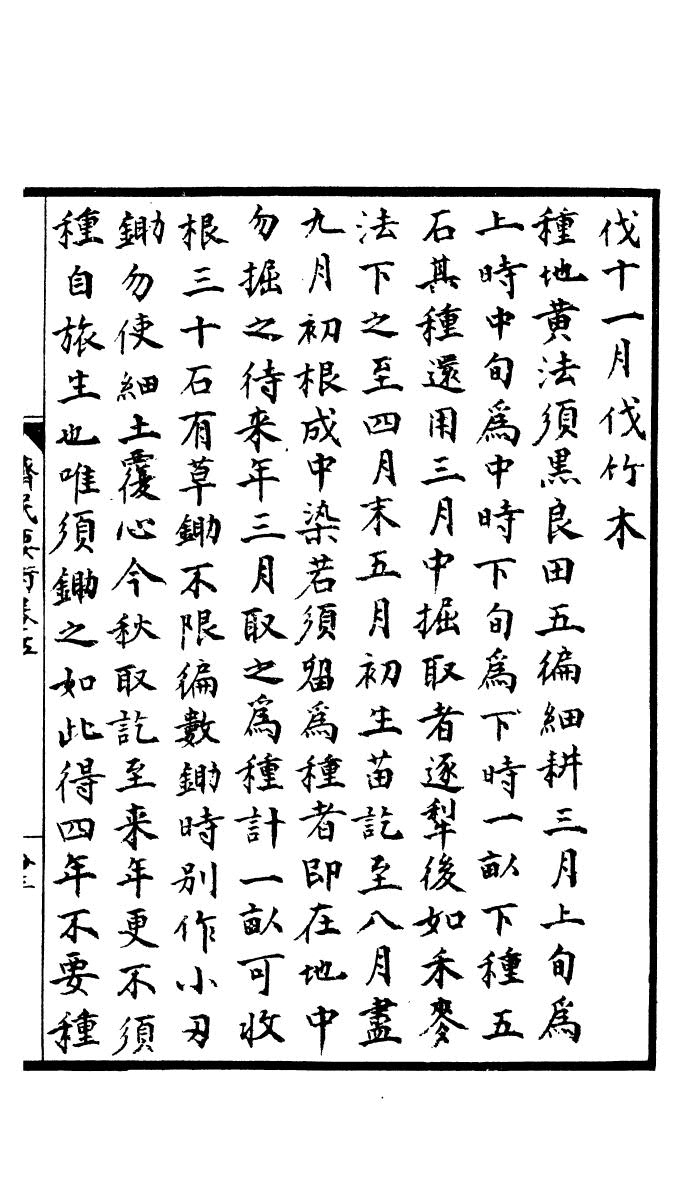 伐十一月伐竹木
種地黄法須黒良田五徧細耕三月上旬爲
上時中旬爲中時下旬爲下時一畝下種五
石其種還用三月中掘取者逐犂後如禾麥
法下之至四月末五月初生苗訖至八月盡
九月初根成中染若須留爲種者即在地中
勿掘之待來年三月取之爲種計一畝可收
根三十石有草鋤不限徧數鋤時别作小刃
鋤勿使細土覆心今秋取訖至来年更不須
種自旅生也唯須鋤之如此得四年不要種
齊民要術卷五